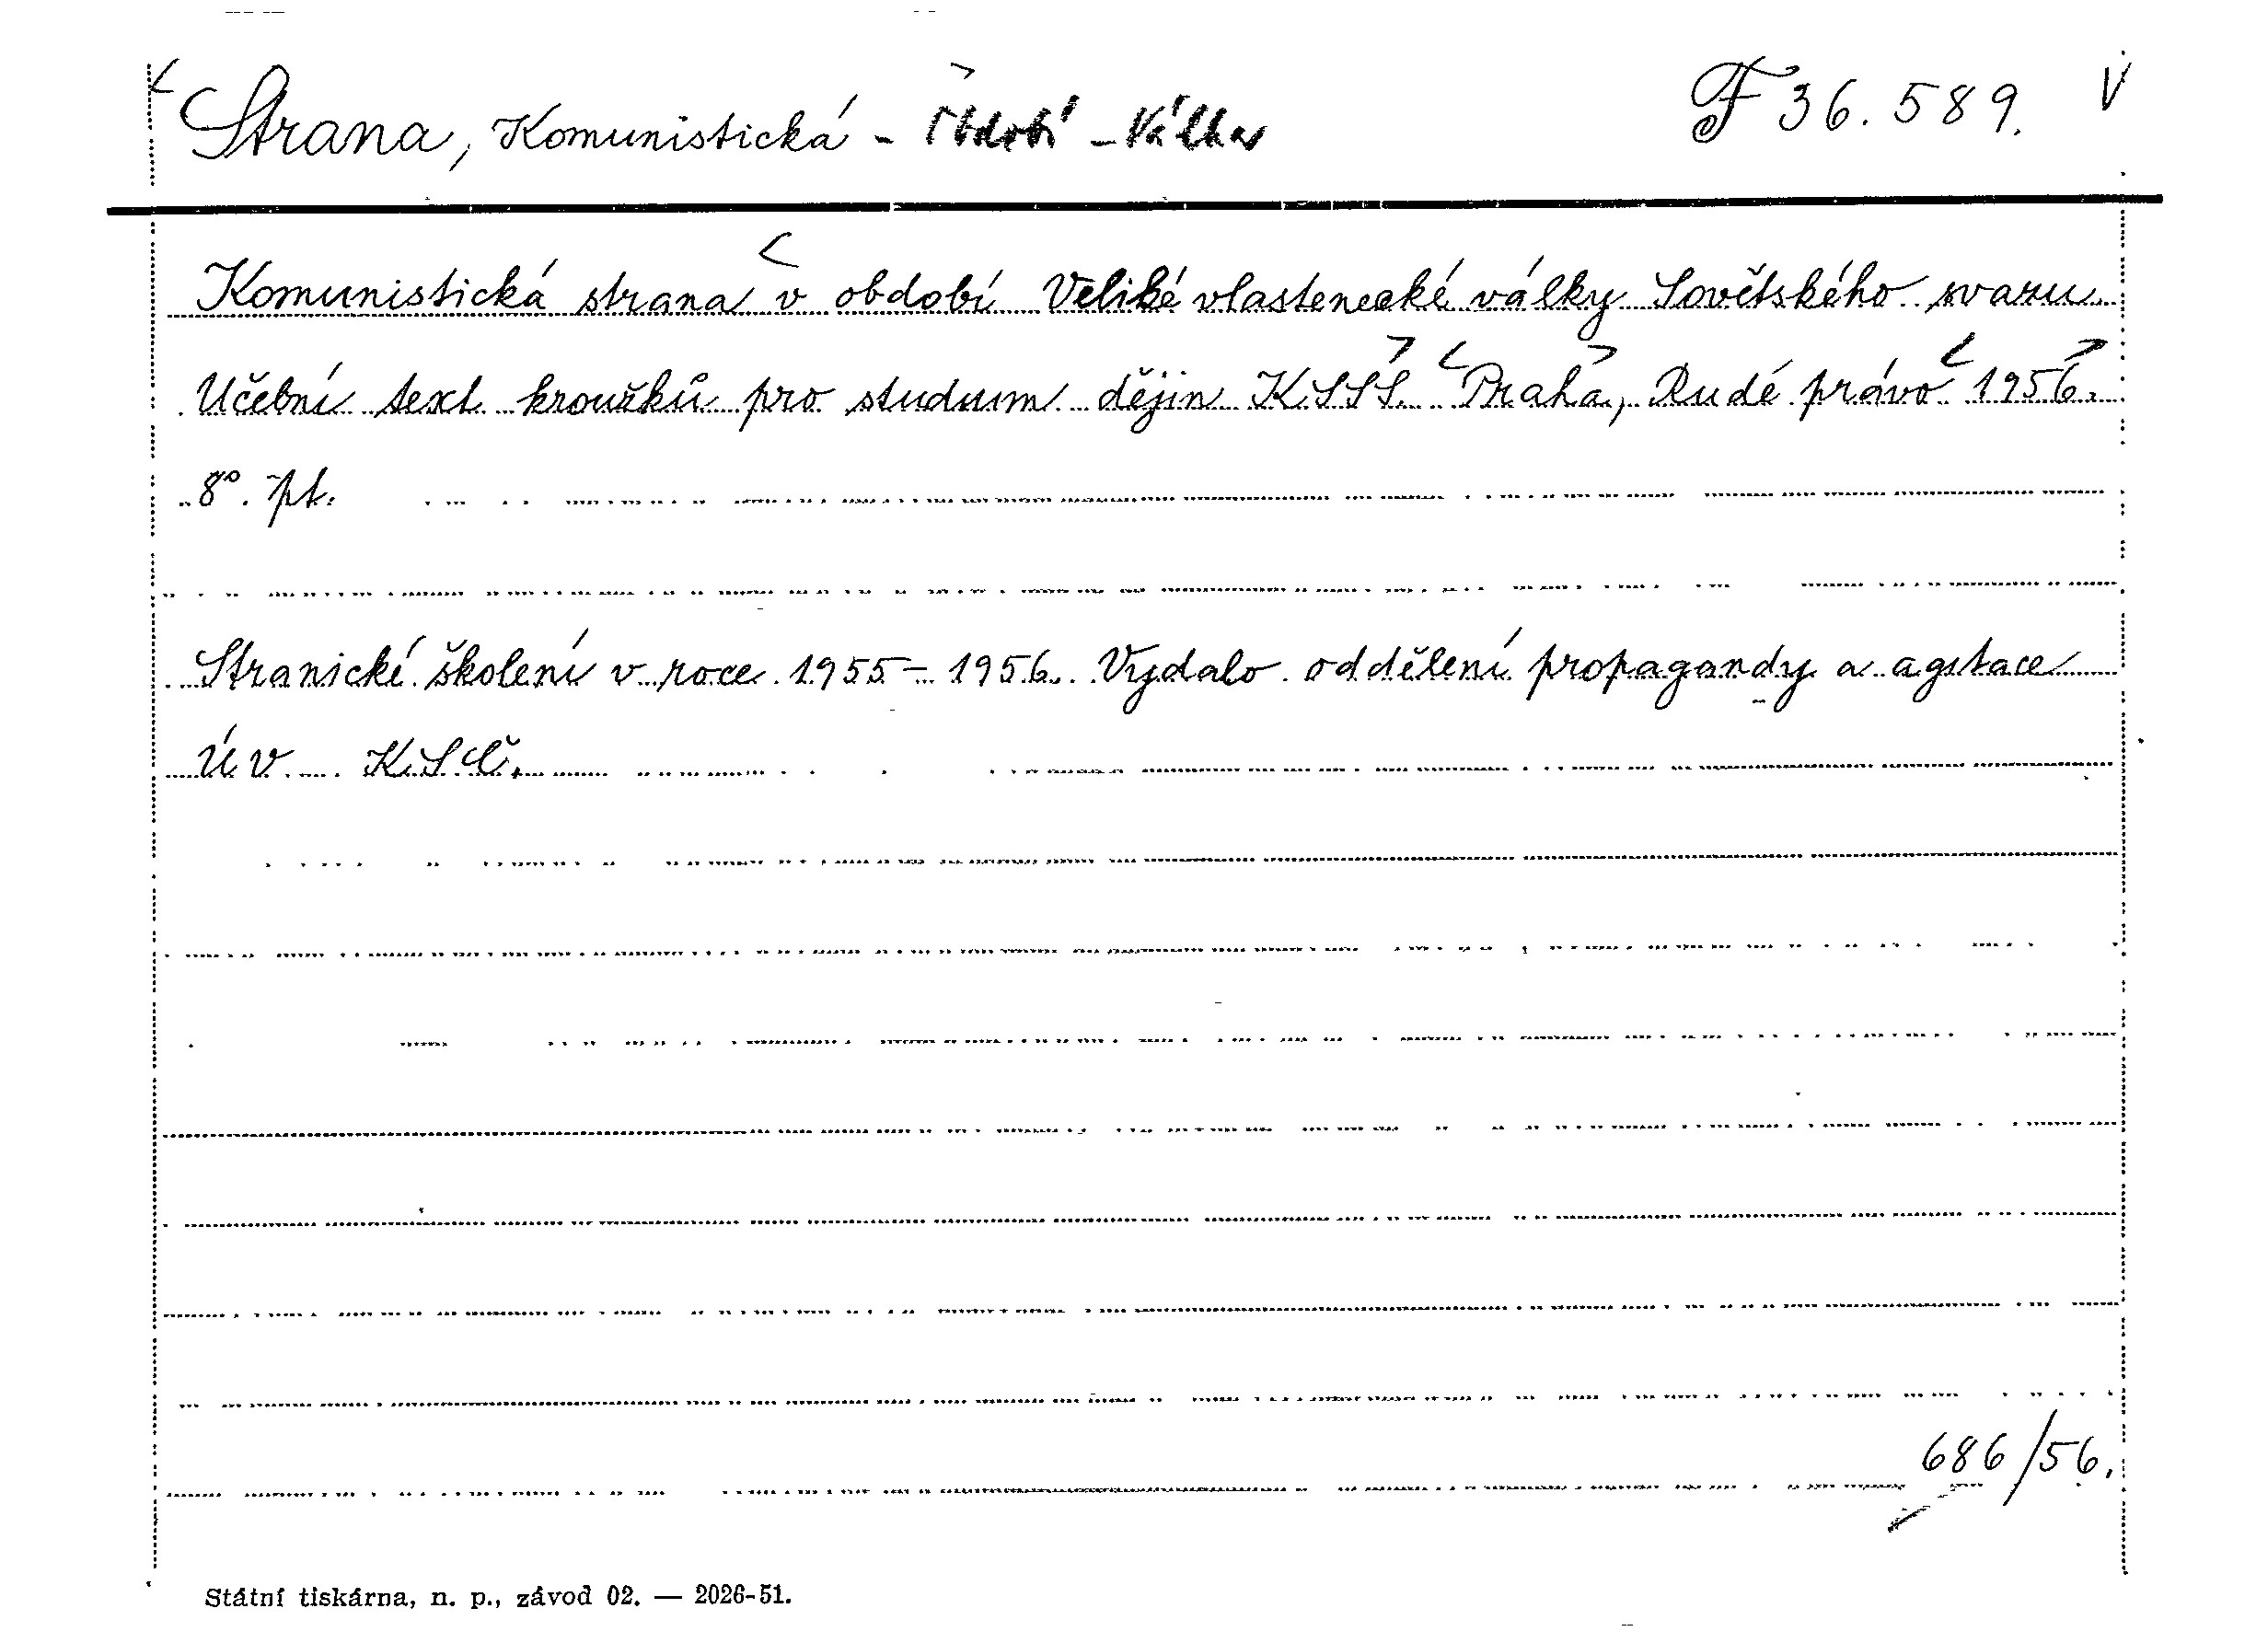 Strana, Komunistická - Období - Válka F 36.589. V
Komunistická strana v období Veliké vlastenecké války Sovětského svazu.
Učební text kroužků pro studium dějin KSSS. Praha, Rudé právo 1956.
8°. pt.
Stranické školení v roce 1955 - 1956. Vydalo oddělení propagandy a agitace
ÚV KSČ.
686/56.
Státní tiskárna, n. p., závod 02. — 2026-51.